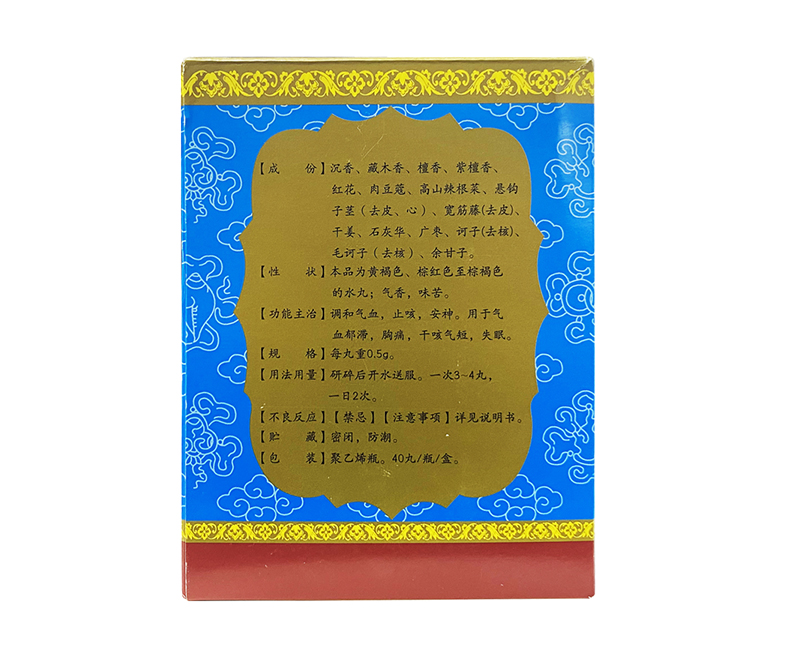 【成　份】沉香、藏木香、檀香、紫檀香、
红花、肉豆蔻、高山辣根菜、悬钩
子茎（去皮、心）、宽筋藤(去皮)、
干姜、石灰华、广枣、诃子(去核)、
毛诃子（去核）、余甘子。
【性　状】本品为黄褐色、棕红色至棕褐色
的水丸；气香，味苦。
【功能主治】调和气血，止咳，安神。用于气
血郁滞，胸痛，干咳气短，失眠。
【规　格】每丸重0.5g。
【用法用量】研碎后开水送服。一次3~4丸，
一日2次。
【不良反应】【禁忌】【注意事项】详见说明书。
【贮　藏】密闭，防潮。
【包　装】聚乙烯瓶。40丸/瓶/盒。